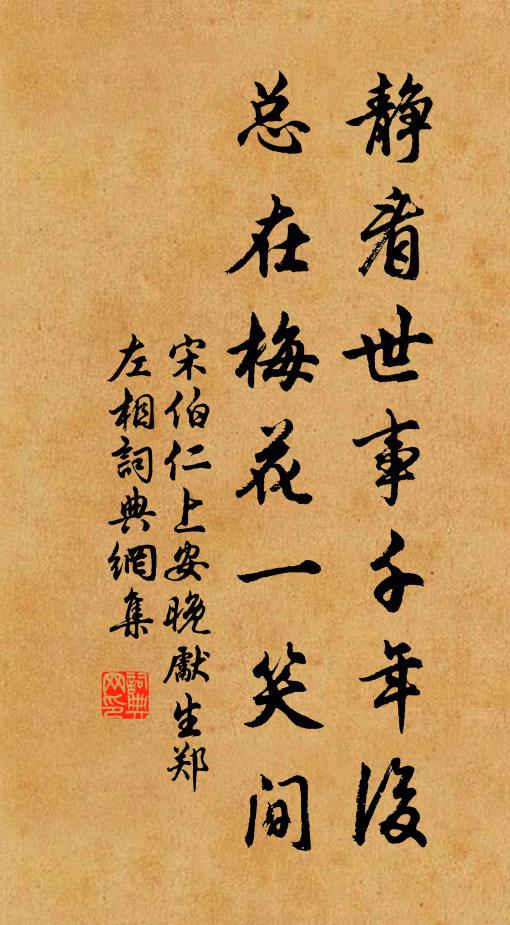 静看世事千年後
总在梅花一笑间
宋伯仁上安晚獻生郑
左相詞典網集
詞典
网印